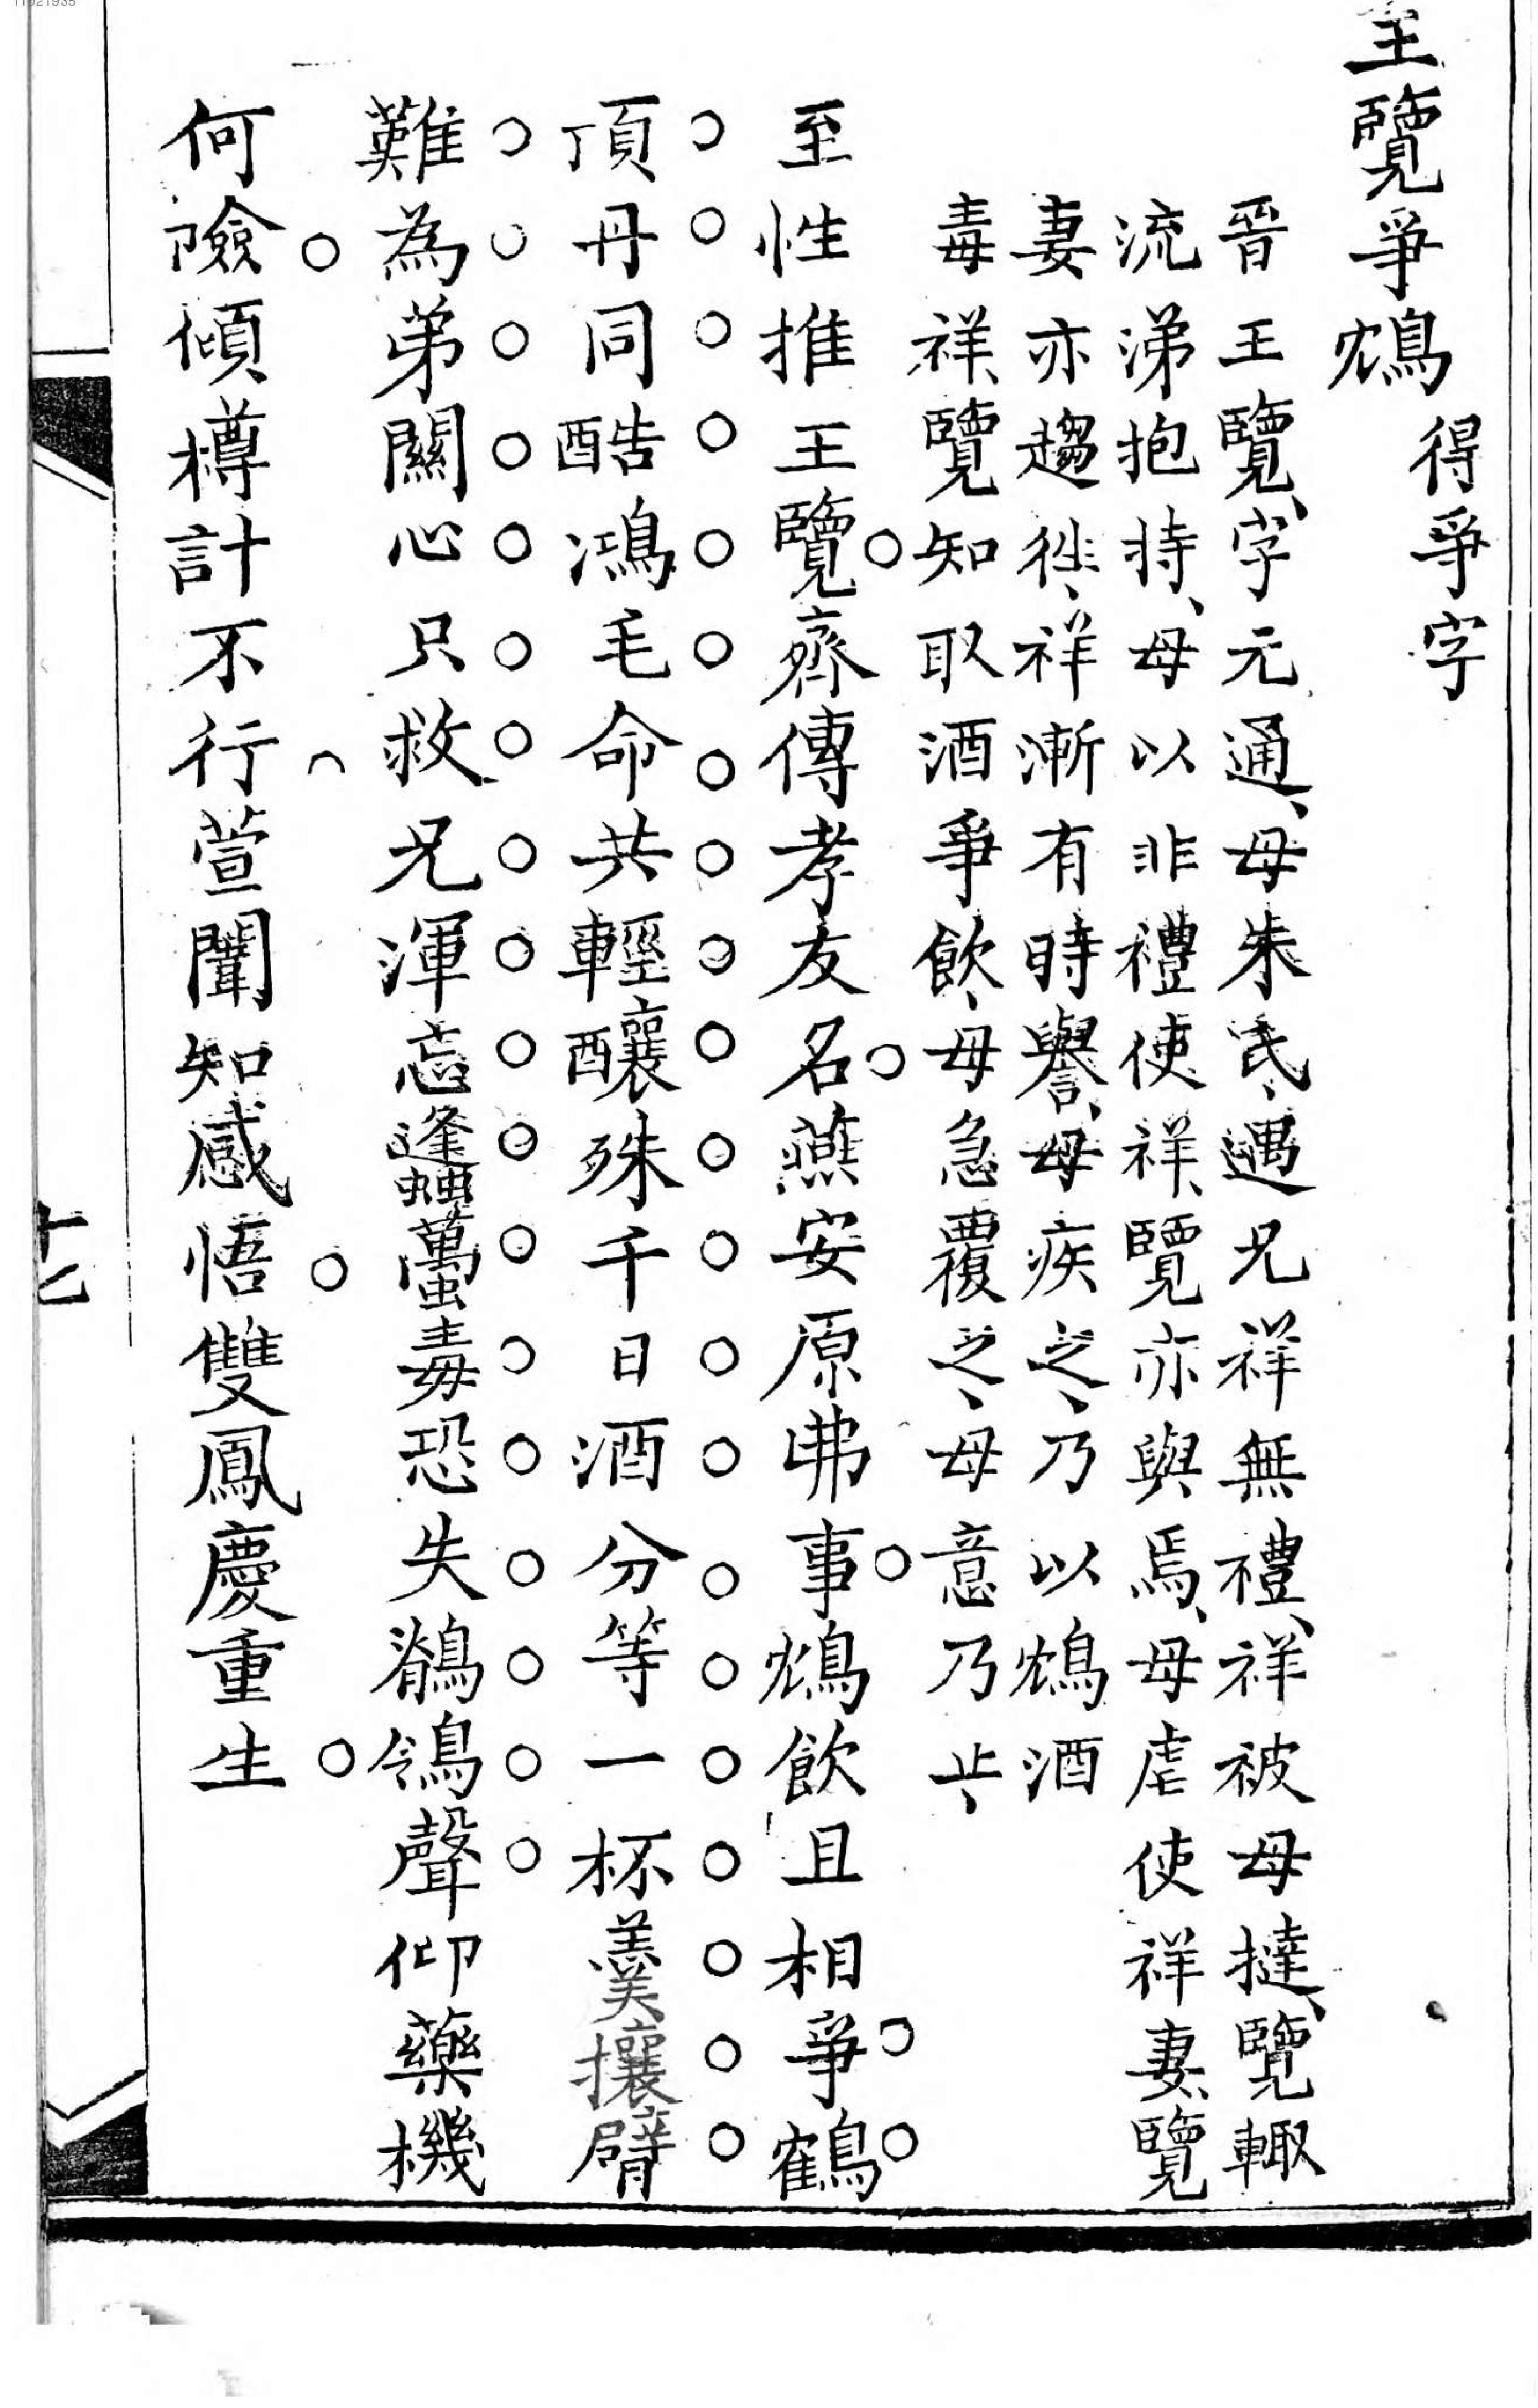 王覽爭鴆
得爭字
晉王覽、字元通、母朱氏、遇兄祥無禮、祥被母撻、覽輙
流涕抱持、母以非禮使祥、覽亦與焉、母虐使祥妻、覽
妻亦趨往、祥漸有時譽、母疾之、乃以鴆酒
毒祥、覽知取酒爭飲、母急覆之、母意乃止、
至性推王覽齊傳孝友名燕安原弗事鴆飲且相爭鶴
頂丹同酷鴻毛命共輕釀殊千日酒分等一杯羹攘臂
難為弟關心只救兄渾忘蠭蠆毒恐失鶺鴒聲仰藥機
何險傾樽計不行萱闈知感悟雙鳳慶重生
十七
11921935